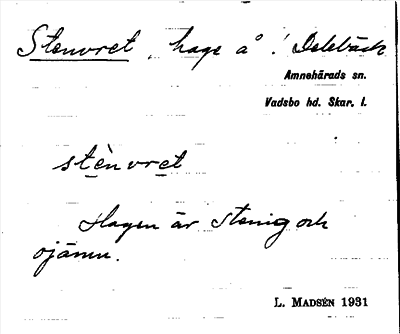 Stenvret, hage å ! Delebäck
Amnehärads sn.
Vadsbo hd. Skar. l.
stènvret
Hagen är stenig och
ojämn.
L. MADSÉN 1931